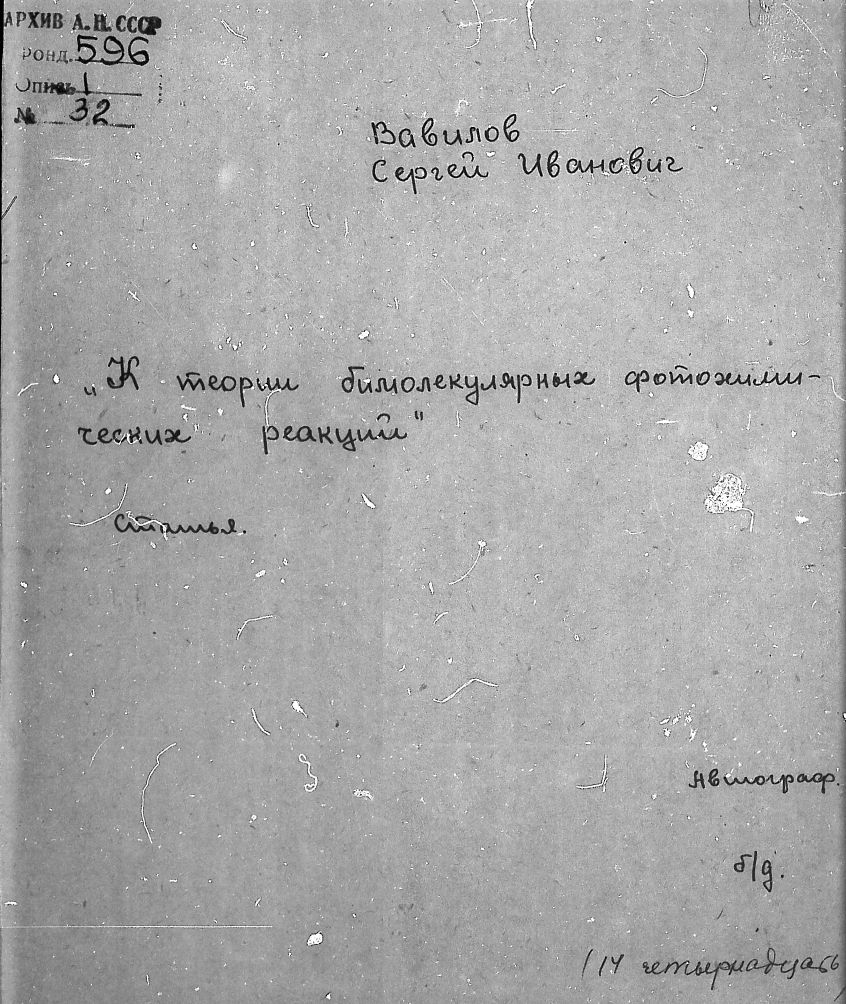 АРХИВ А. Н. СССР
Фонд. 596
Опись 1
№ 32
Вавилов
Сергей Иванович
„К теории бимолекулярных фотохими-
ческих реакций"
Статья.
Автограф.
б/д.
14 четырнадцать